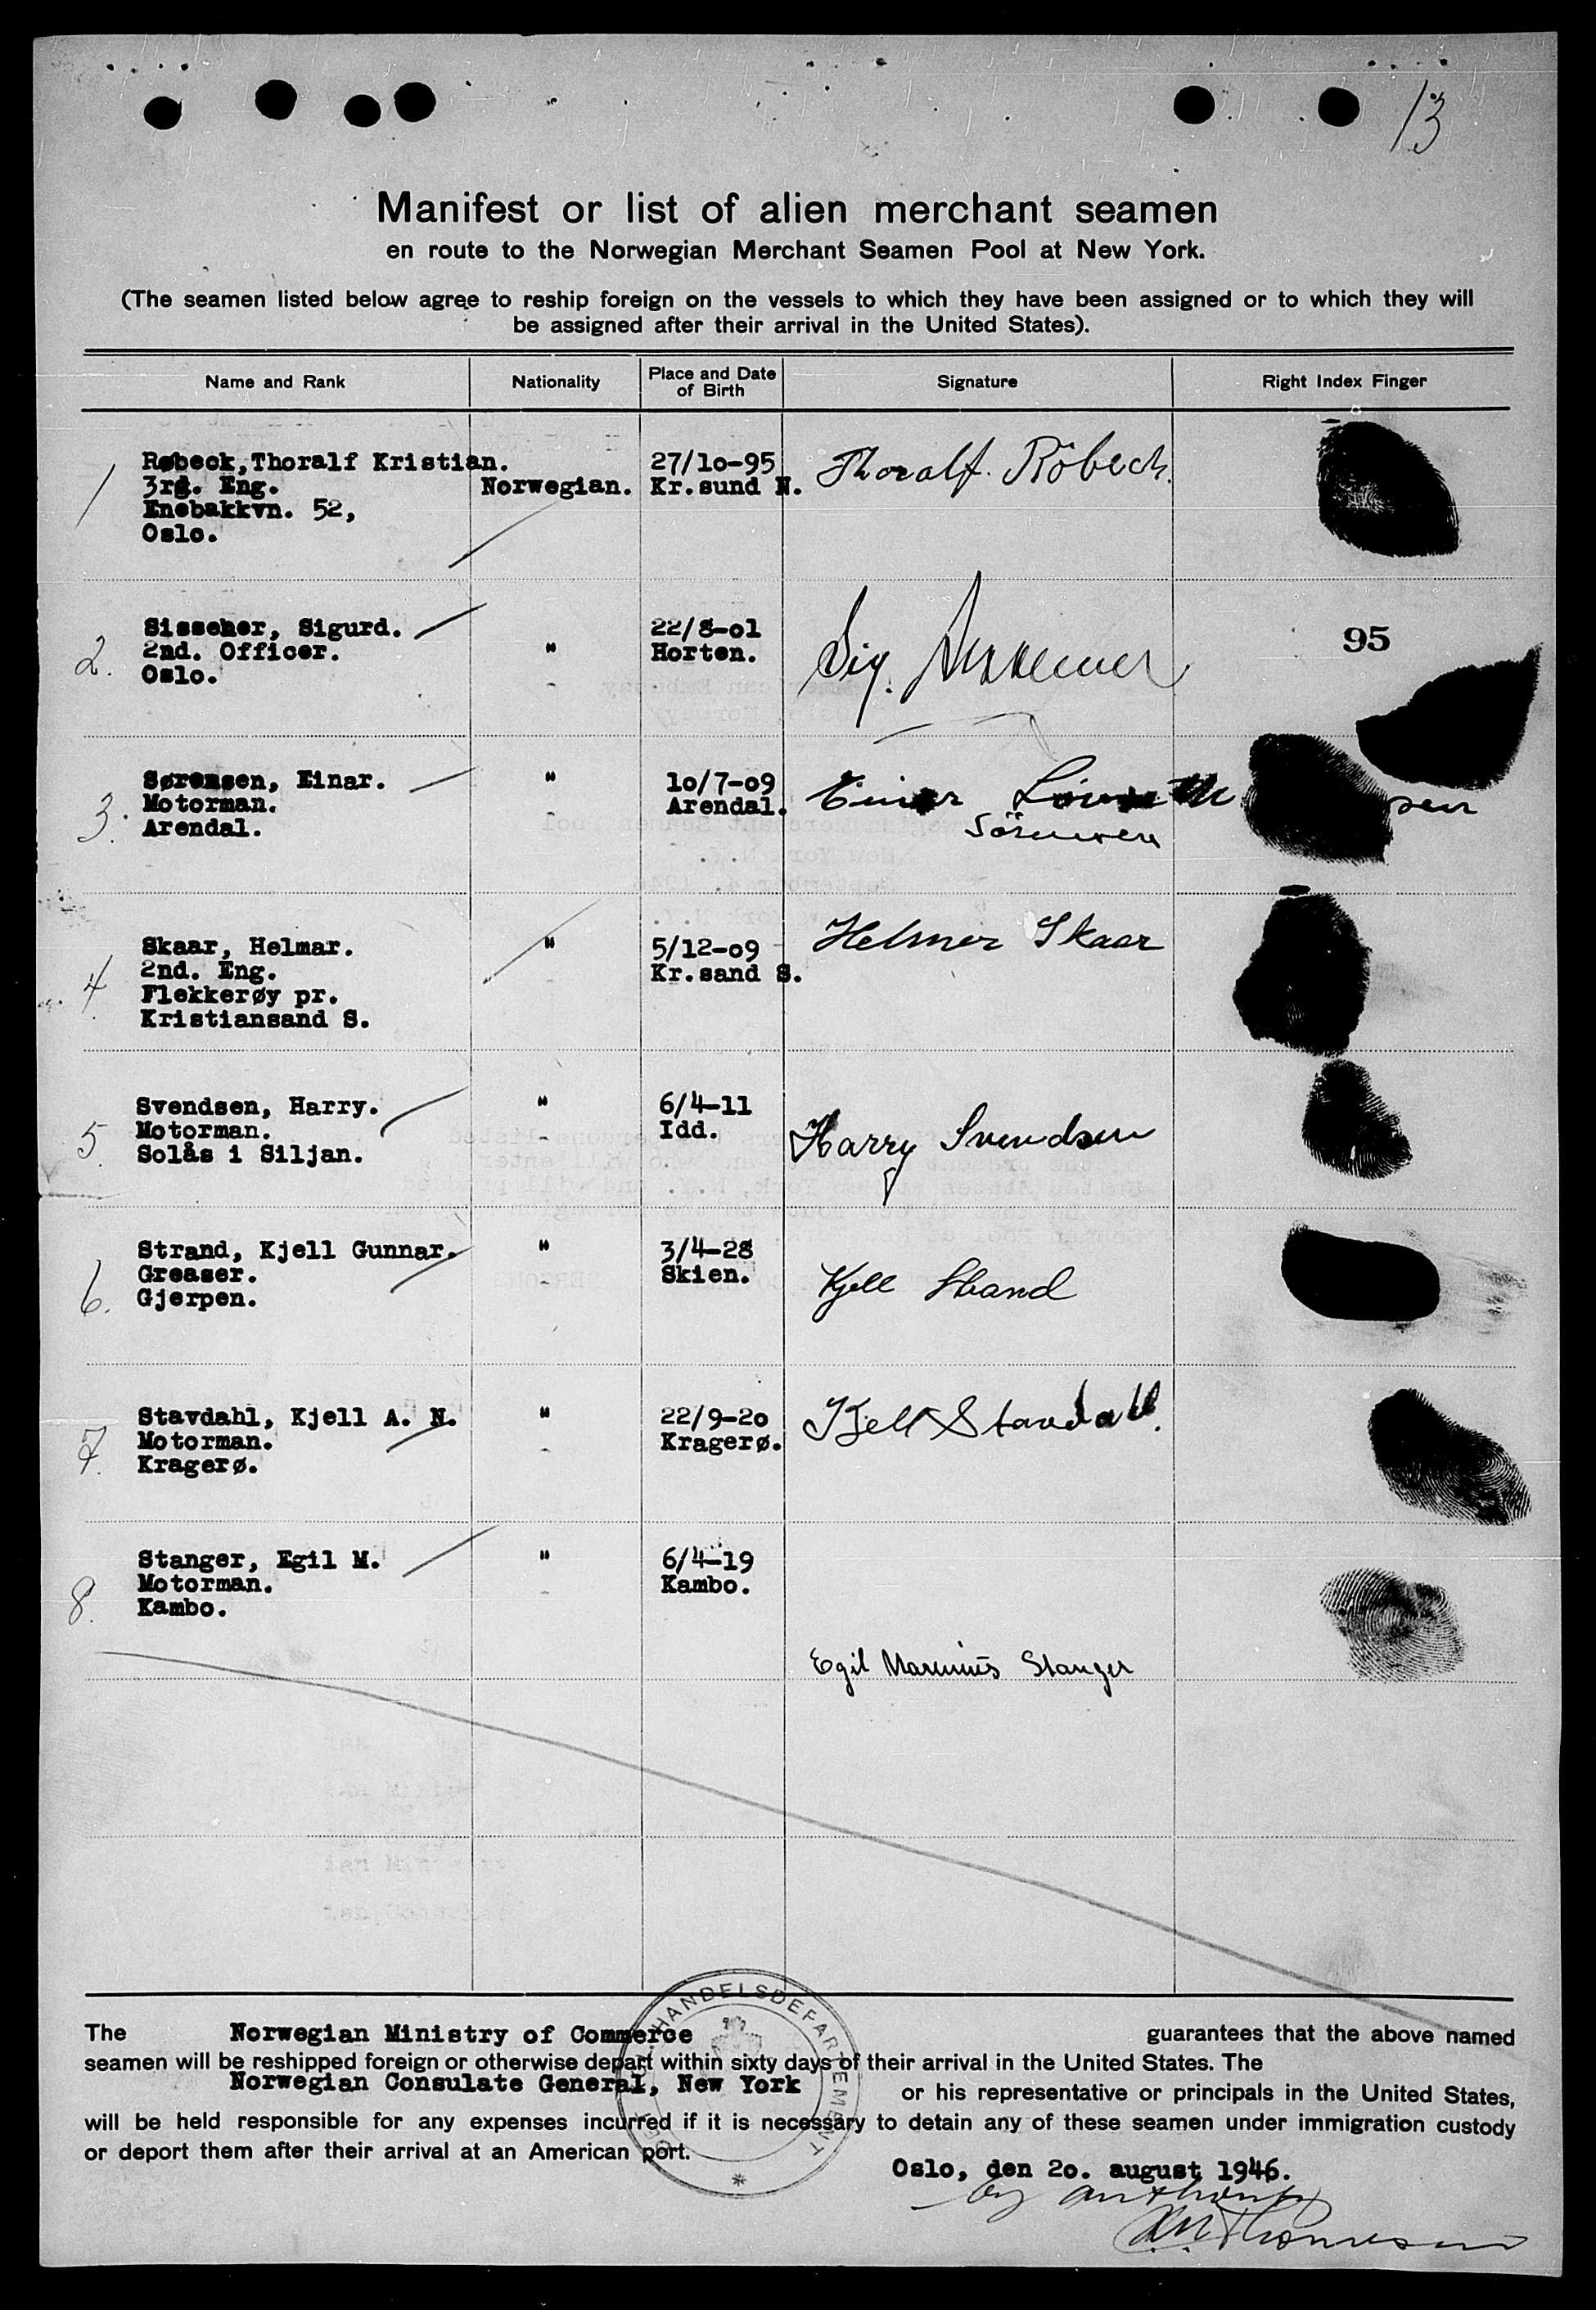 13
Manifest or list of alien merchant seamen
en route to the Norwegian Merchant Seamen Pool at New York.
(The seamen listed below agree to reship foreign on the vessels to which they have been assigned or to which they will
be assigned after their arrival in the United States).
Name and Rank Nationality Place and Date of Birth Signature Right Index Finger
1 Røbeck, Thoralf Kristian. 27/10-95 Thoralf. Röbeck.
3rd. Eng. Norwegian. Kr.sund N.
Enebakkvn. 52,
Oslo.
Sissener, Sigurd. 22/8-01 95
2. 2nd. Officer. " Horten. Sig. Sissener
Oslo.
Sørensen, Einar. " 10/7-09
3. Motorman. Arendal. Einar
Arendal. Sörensen
Skaar, Helmar. " 5/12-09 Helmer Skaar
4 2nd. Eng. Kr.sand S.
Flekkerøy pr.
Kristiansand S.
Svendsen, Harry. " 6/4-11
5 Motorman. Idd. Harry Svendsen
Solås i Siljan.
Strand, Kjell Gunnar. " 3/4-28
6. Greaser. Skien. Kjell Strand
Gjerpen.
Stavdahl, Kjell A. N. " 22/9-20 Kjell Stavdahl.
7. Motorman. Kragerø.
Kragerø.
Stanger, Egil M. " 6/4-19
8. Motorman. Kambo.
Kambo.
Egil Marinius Stanger
HANDELSDEPARTEMENT
The Norwegian Ministry of Commerce guarantees that the above named
seamen will be reshipped foreign or otherwise depart within sixty days of their arrival in the United States. The
Norwegian Consulate General, New York or his representative or principals in the United States,
will be held responsible for any expenses incurred if it is necessary to detain any of these seamen under immigration custody
or deport them after their arrival at an American port.
Oslo, den 20. august 1946.
by authority